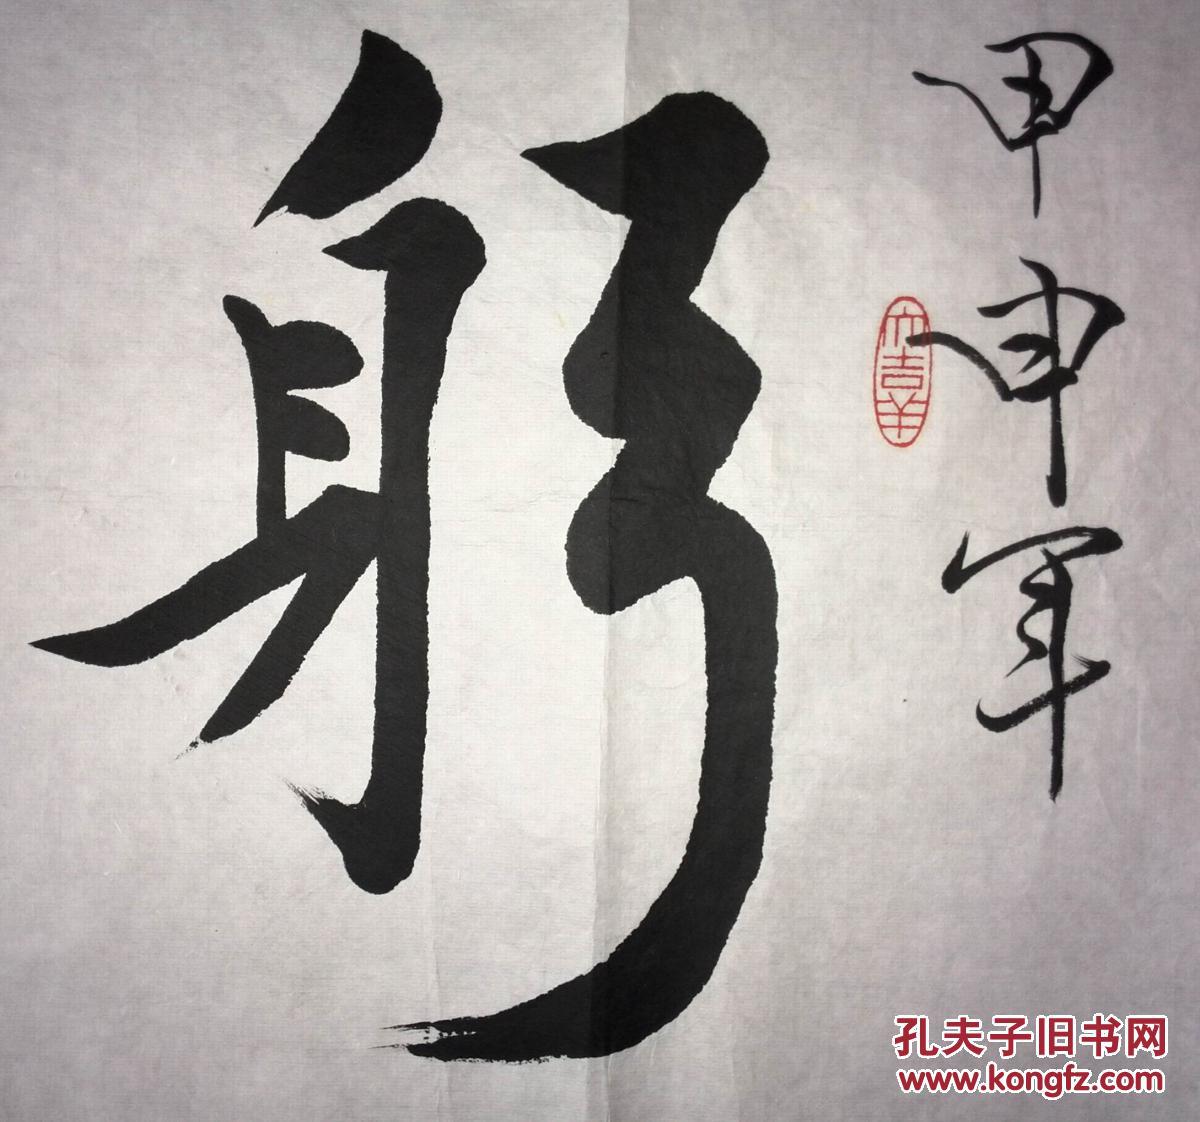 甲申年
大吉羊
躬
孔夫子旧书网
www.kongfz.com